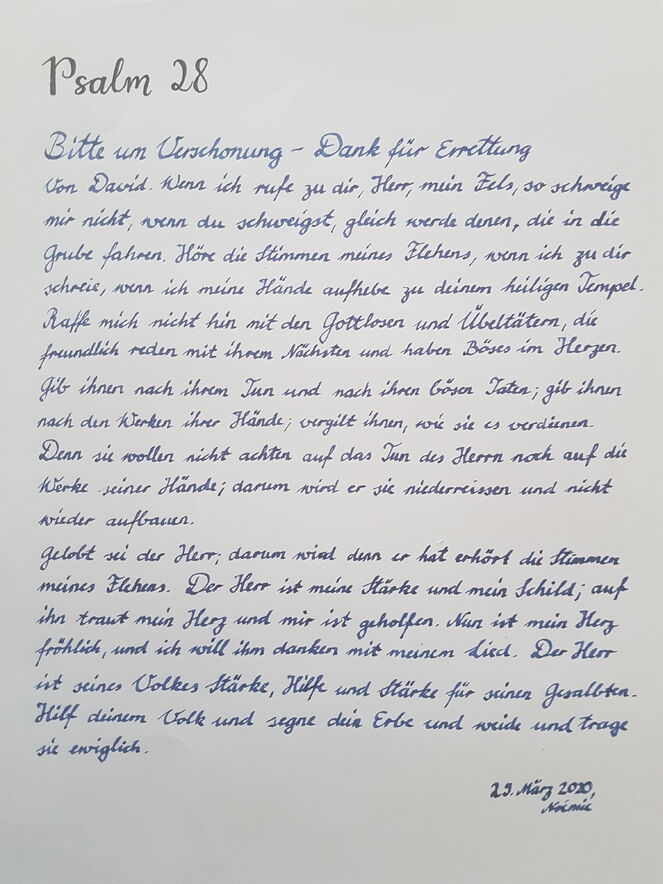 Psalm 28
Bitte um Verschonung – Dank für Errettung
Von David. Wenn ich rufe zu dir, Herr, mein Fels, so schweige
mir nicht, wenn du schweigst, gleich werde denen, die in die
Grube fahren. Höre die Stimmen meines Flehens, wenn ich zu dir
schreie, wenn ich meine Hände aufhebe zu deinem heiligen Tempel.
Raffe mich nicht hin mit den Gottlosen und Übeltätern, die
freundlich reden mit ihrem Nächsten und haben Böses im Herzen.
Gib ihnen nach ihrem Tun und nach ihren bösen Taten; gib ihnen
nach den Werken ihrer Hände; vergilt ihnen, wie sie es verdienen.
Denn sie wollen nicht achten auf das Tun des Herrn noch auf die
Werke seiner Hände; darum wird er sie niederreissen und nicht
wieder aufbauen.
Gelobt sei der Herr; darum wird denn er hat erhört die Stimmen
meines Flehens. Der Herr ist meine Stärke und mein Schild; auf
ihn traut mein Herz und mir ist geholfen. Nun ist mein Herz
fröhlich, und ich will ihm danken mit meinem Lied. Der Herr
ist seines Volkes Stärke, Hilfe und Stärke für seinen Gesalbten.
Hilf deinem Volk und segne dein Erbe und weide und trage
sie ewiglich.
29. März 2020,
Noémie